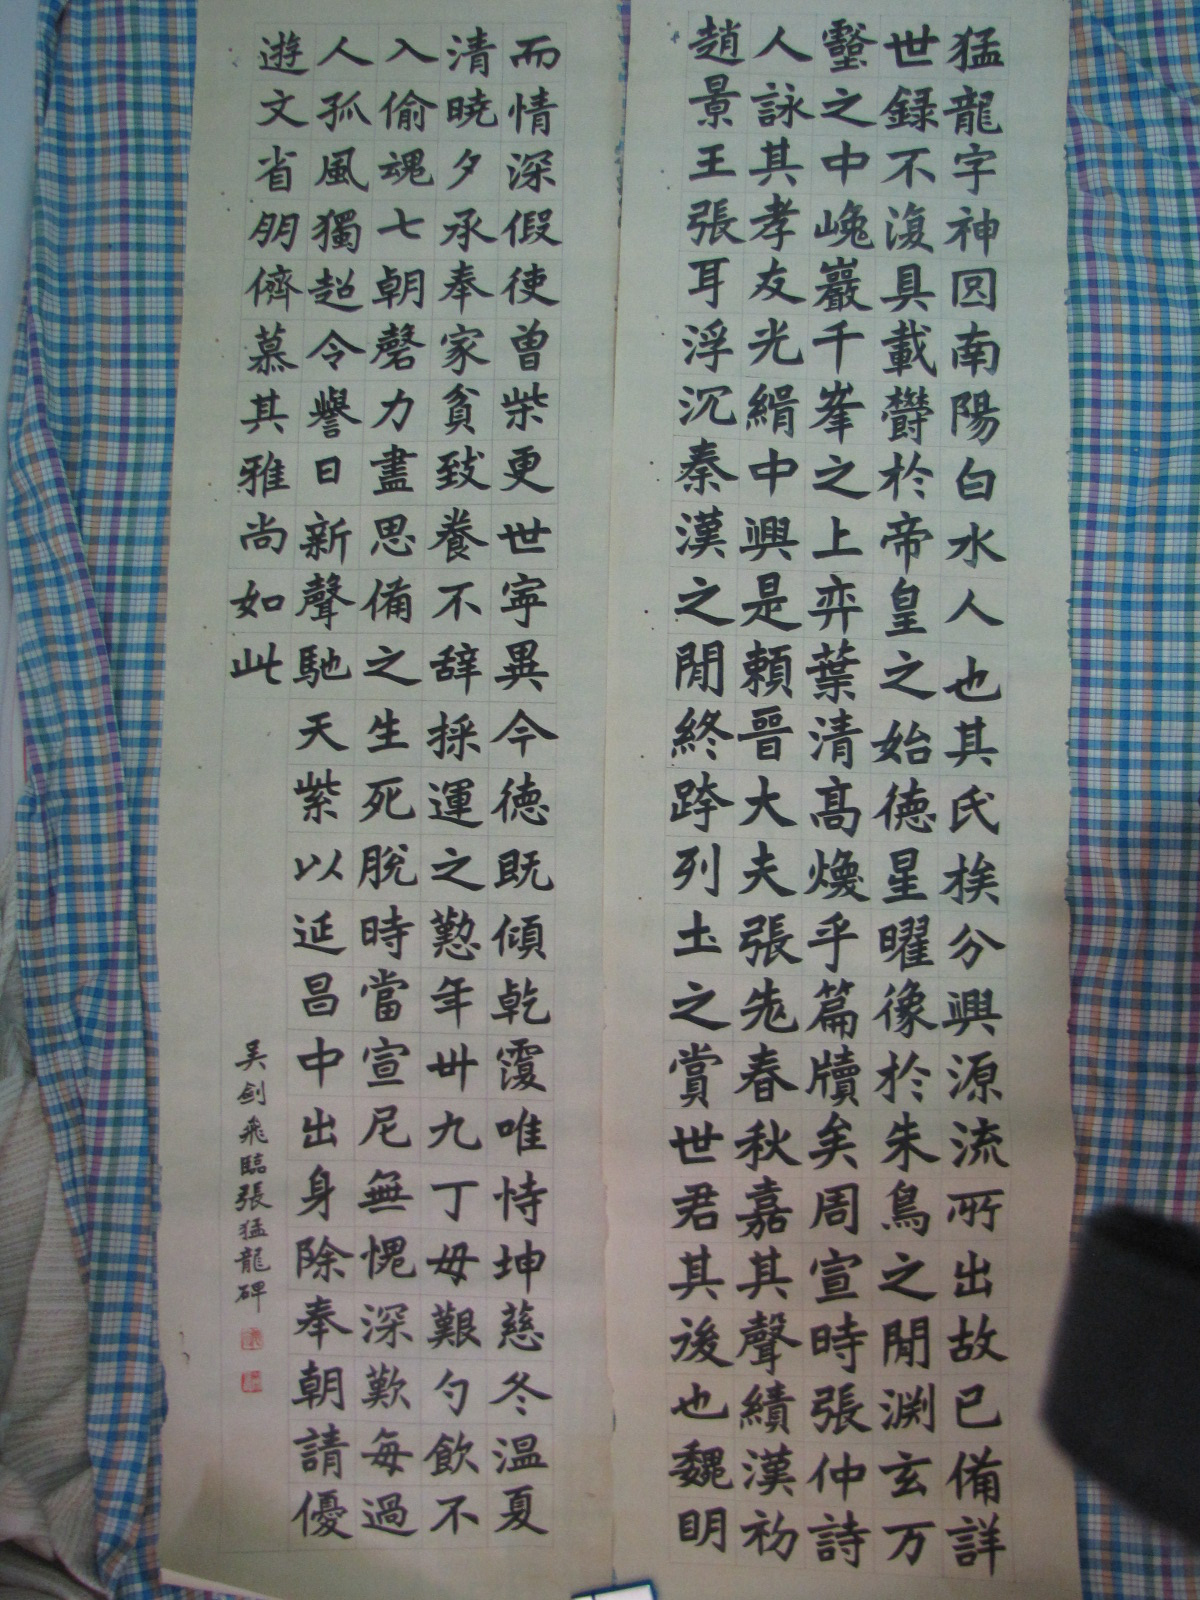 猛龍字神冏南陽白水人也其氏族分興源流所出故已備詳
世録不復具載欝於帝皇之始徳星曜像於朱鳥之閒渕玄万
壑之中巉巖千峯之上弈葉清高煥乎篇牘矣周宣時張仲詩
人詠其孝友光緝中興是賴晉大夫張老春秋嘉其聲績漢初
趙景王張耳浮沉秦漢之閒終跨列土之賞世君其後也魏明
而情深假使曽柴更世寧異今徳既傾乾覆唯恃坤慈冬温夏
清曉夕承奉家貧致養不辞採運之懃年卅九丁母艱勺飲不
入偷魂七朝磬力盡思備之生死脫時當宣尼無愧深歎每過
人孤風獨超令譽日新聲馳天紫以延昌中出身除奉朝請優
遊文省朋儕慕其雅尚如此
吴剑飛臨張猛龍碑